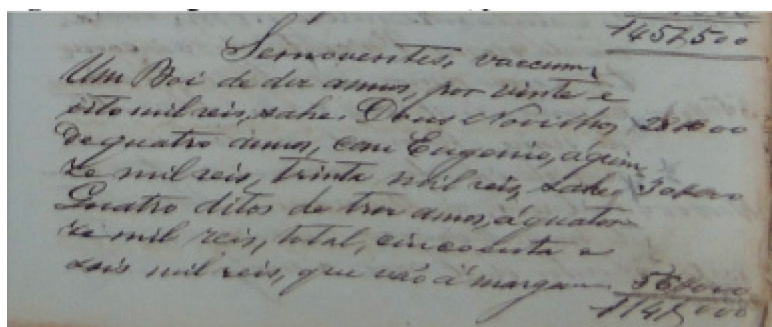 1457,500
Semoventes, vaccum,
Um Boi de dez annos, por vinte e
oito mil reis, sahe. Dous Novilhos 28$000
de quatro annos, com Eugenio, a quin-
ze mil reis, trinta mil reis, sahe, 30$000
Quatro ditos de tres annos, á quator-
ze mil reis, total, cincoenta e
seis mil reis, que vão á margem 56$000
114$000